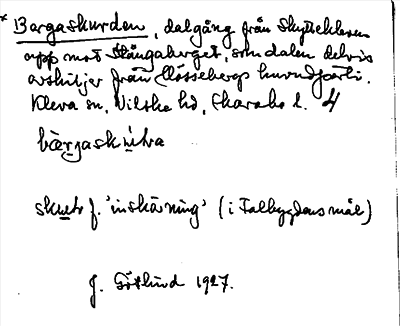 * Bargaskurden, dalgång från Skyttekleven
upp mot Stångaberget, som dalen delvis
avskiljer från Mössebergs huvudparti.
Kleva sn, Vilske hd, Skarabo l. 4
bærgaskutra
skutr f. 'inskärning' (i Falbygdens mål)
J. Götlind 1927.